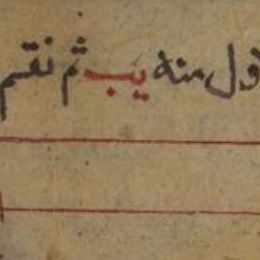 ول منه يب ثم نقسم